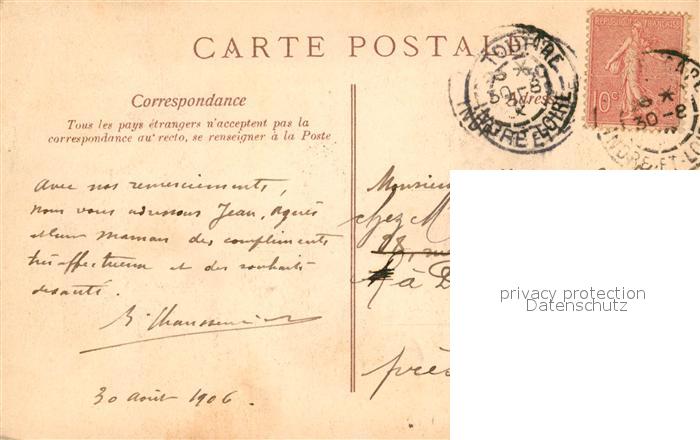 CARTE POSTALE
REPUBLIQUE FRANÇAISE
10c
TOURS-GARE
30-8
INDRE-ET-LOIRE
Correspondance
Adresse
Tous les pays étrangers n'acceptent pas la
correspondance au recto, se renseigner à la Poste
Avec nos remerciements,
nous vous adressons Jean, Agnès
et leur maman des compliments
très affectueux et des souhaits
de santé.
30 Août 1906.
Monsieur
chez M
à D
près
privacy protection
Datenschutz